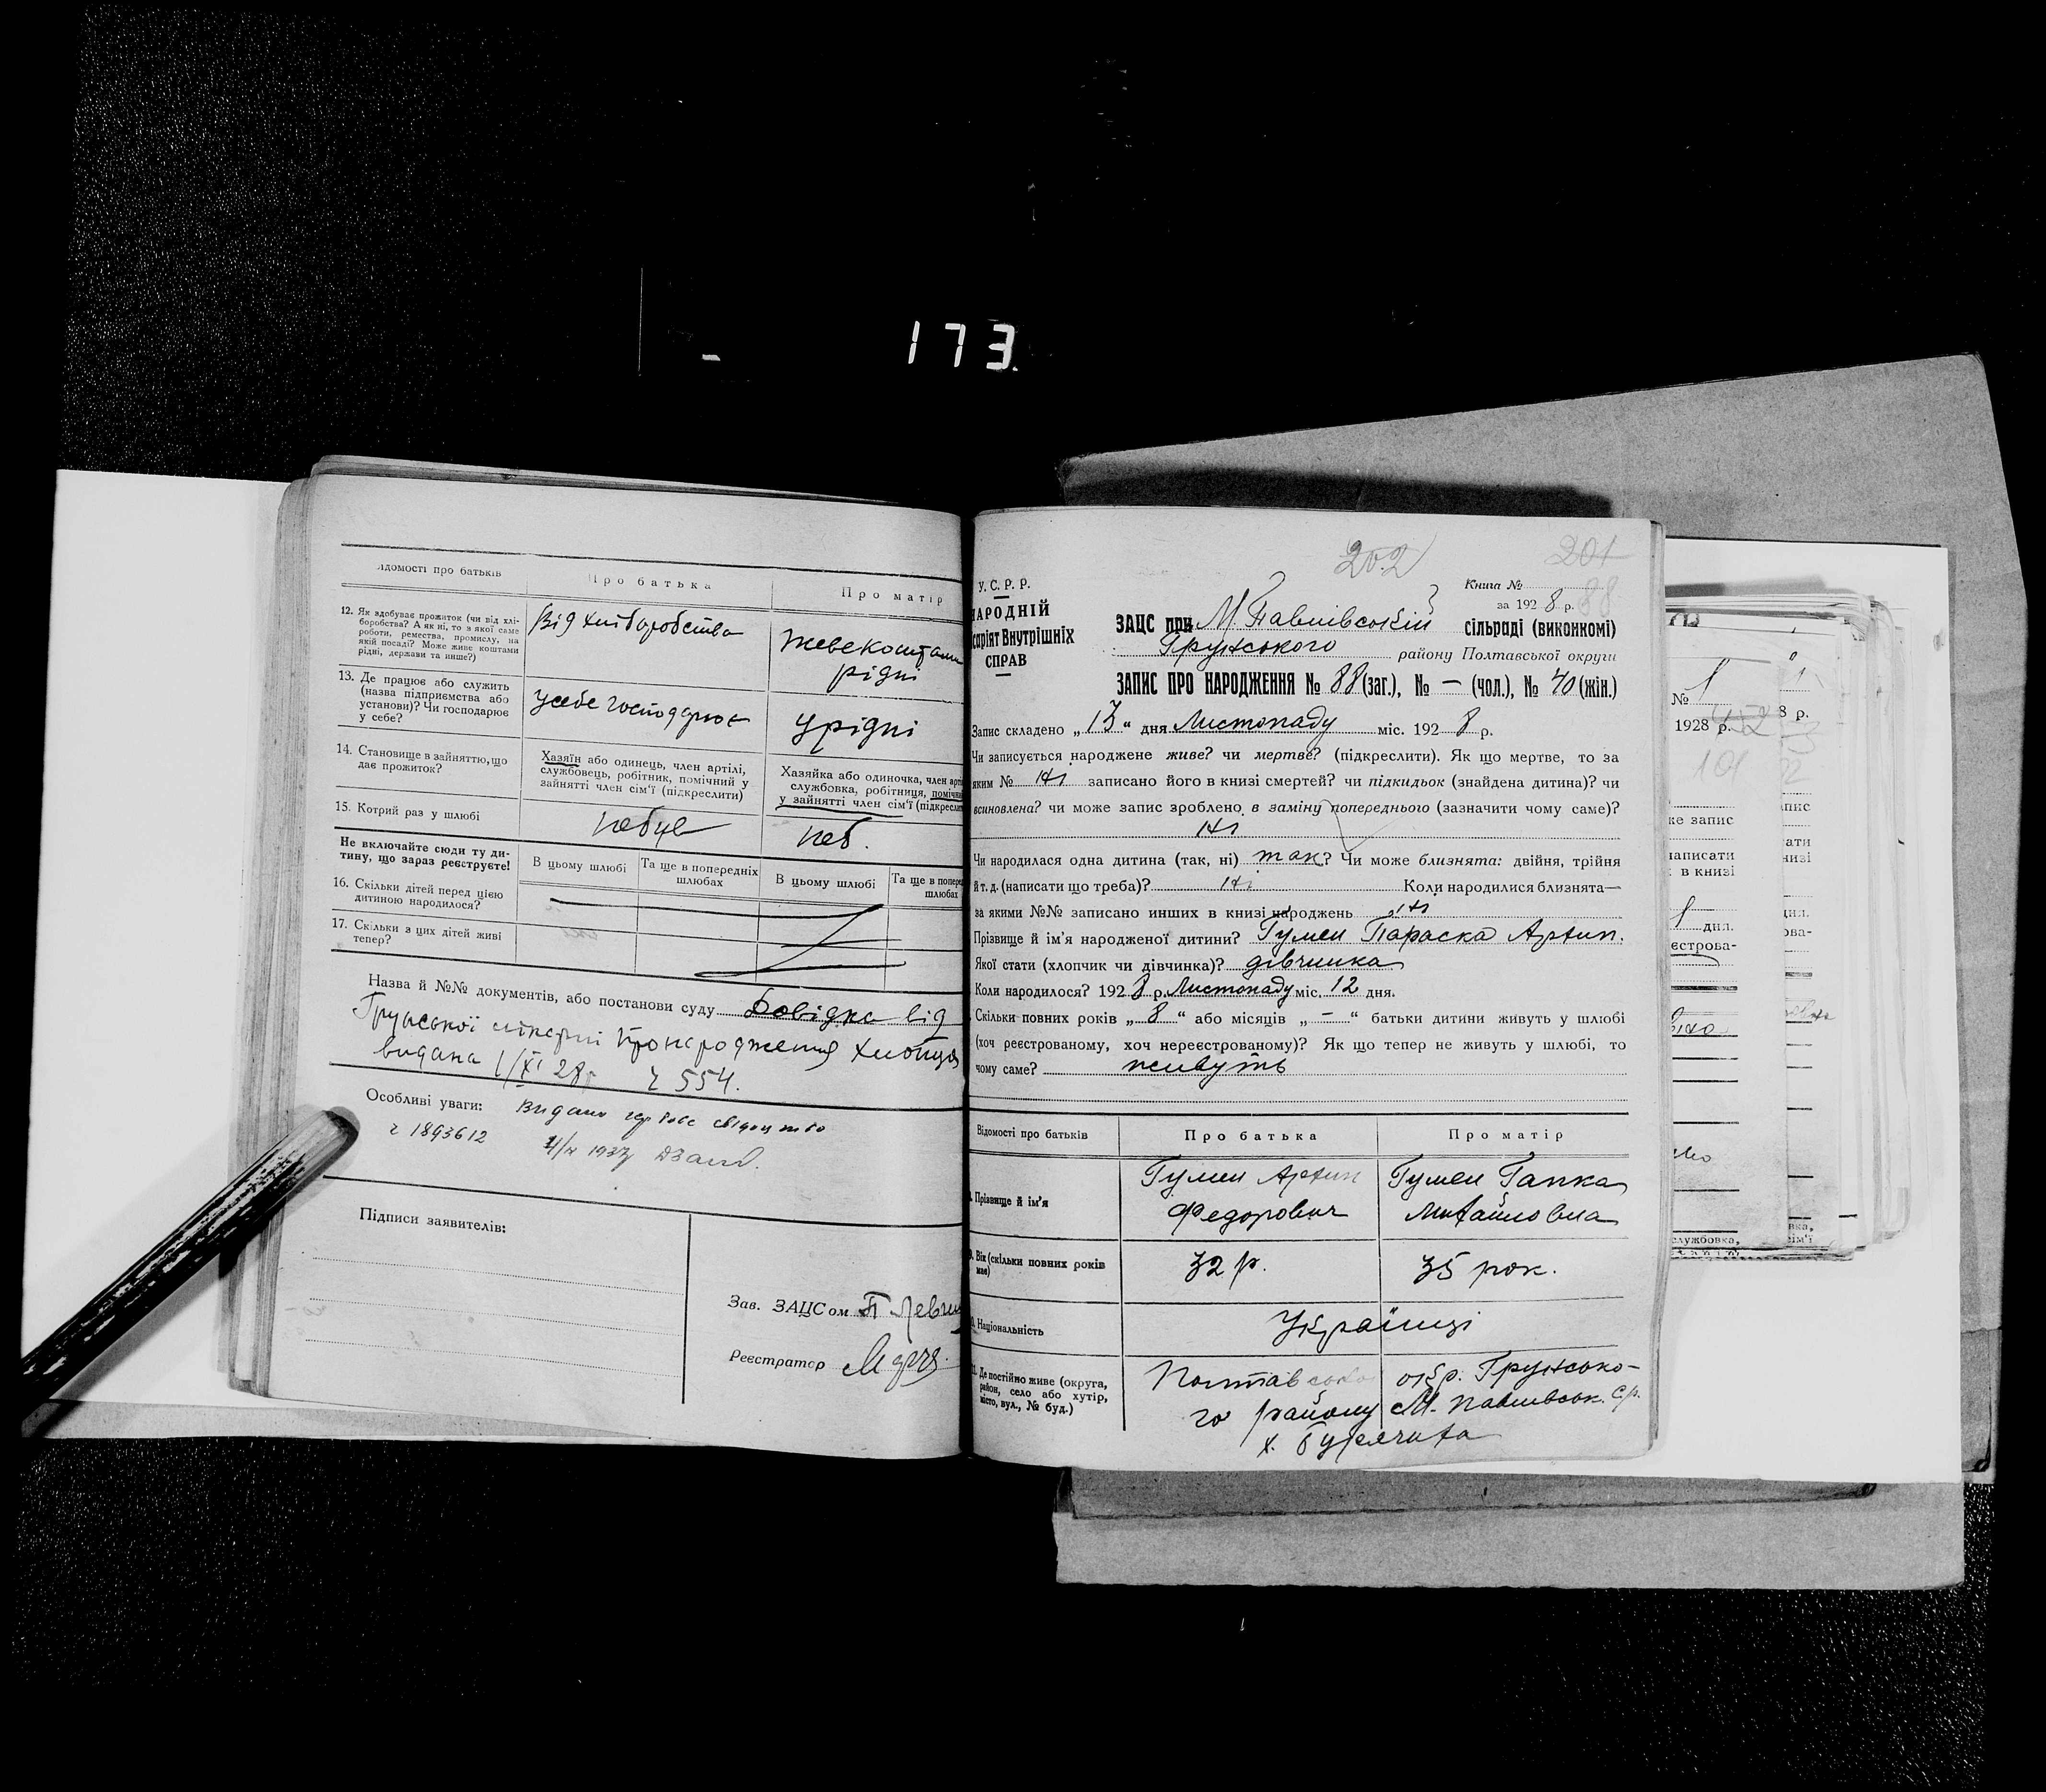 173.
Відомості про батьків
Про батька
Про матір
12. Як здобуває прожиток (чи від хлі-
боробства? А як ні, то з якої саме
роботи, ремества, промислу, на
якій посаді? Може живе коштами
рідні, держави та инше?)
Від хліборобства
живе коштами
рідні
13. Де працює або служить
(назва підприємства або
установи)? Чи господарює
у себе?
У себе господарює
У рідні
14. Становище в зайняттю, що
дає прожиток?
Хазяїн або одинець, член артілі,
службовець, робітник, помічний у
зайнятті член сім'ї (підкреслити)
Хазяйка або одиночка, член арті
службовка, робітниця, помічна
у зайнятті член сім'ї (підкреслити
15. Котрий раз у шлюбі
Не включайте сюди ту ди-
тину, що зараз реєструєте!
В цьому шлюбі
Та ще в попередніх
шлюбах
В цьому шлюбі
Та ще в попере
шлюбах
16. Скільки дітей перед цією
дитиною народилося?
17. Скільки з цих дітей живі
тепер?
Назва й №№ документів, або постанови суду Довідка від
про народження хлопця
видана 1/XI 28 554.
Особливі уваги: Видано
1893612
1937
Підписи заявителів:
Зав. ЗАЦСом П
Реєстратор
202
201
У.С.Р.Р.
НАРОДНІЙ
саріят Внутрішніх
СПРАВ
Книга №
за 1928 р. 88
ЗАЦС при М. Павлівській сільраді (виконкомі)
Грунського району Полтавської округи
ЗАПИС ПРО НАРОДЖЕННЯ № 88 (заг.), № — (чол.), № 40 (жін.)
Запис складено „13“ дня Листопаду міс. 1928 р.
Чи записується народжене живе? чи мертве? (підкреслити). Як що мертве, то за
яким № ні записано його в книзі смертей? чи підкидьок (знайдена дитина)? чи
всиновлена? чи може запис зроблено в заміну попереднього (зазначити чому саме)?
ні
Чи народилася одна дитина (так, ні) так? Чи може близнята: двійня, трійня
й т. д. (написати що треба)? ні Коли народилися близнята—
за якими №№ записано инших в книзі народжень ні
Прізвище й ім'я народженої дитини? Гумен Параска Архип.
Якої стати (хлопчик чи дівчинка)? дівчинка
Коли народилося? 1928 р. Листопаду міс. 12 дня.
Скільки повних років „8“ або місяців „—“ батьки дитини живуть у шлюбі
(хоч реєстрованому, хоч нереєстрованому)? Як що тепер не живуть у шлюбі, то
чому саме? живуть
Відомості про батьків
Про батька
Про матір
Прізвище й ім'я
Гумен Архип
Федорович
Гумен Гапка
Михайловна
Вік (скільки повних років
має)
32 р.
35 рок.
Національність
Українці
11. Де постійно живе (округа,
район, село або хутір,
місто, вул., № буд.)
Полтавсько
окр. Грунсько-
го району
М. Павлівськ. С/р.
№ 1
1928 р.
8 р.
101
же запис
написати
в книзі
дня.
єстрова-
службовка,